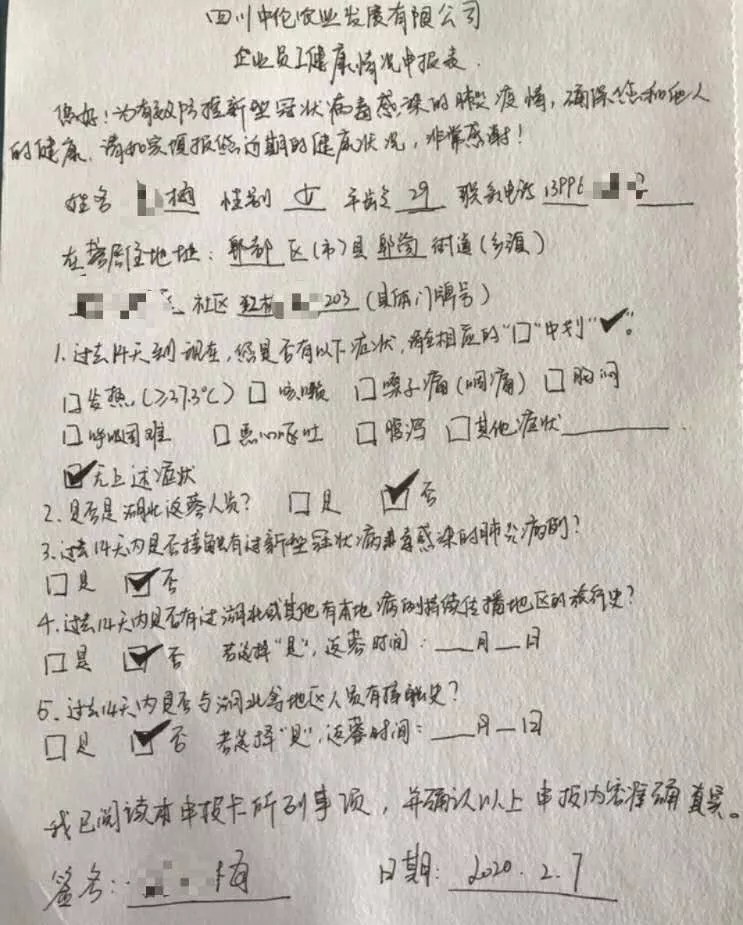 四川中伦农业发展有限公司
企业员工健康情况申报表.
您好!为有效防控新型冠状病毒感染的肺炎疫情,确保您和他人
的健康,请如实填报您近期的健康状况,非常感谢!
姓名 梅 性别 女 年龄 29 联系电话 13996
在蓉居住地址: 郫都 区(市)县 郫筒 街道(乡镇)
社区 203 (具体门牌号)
1.过去14天到现在,您是否有以下症状,请在相应的“口”中划“✔”。
□发热(≥37.3℃) □咳嗽 □嗓子痛(咽痛) □胸闷
□呼吸困难 □恶心呕吐 □腹泻 □其他症状
☑无上述症状
2.是否是湖北返蓉人员? □是 ☑否
3.过去14天内是否接触有过新型冠状病毒感染的肺炎病例?
□是 ☑否
4.过去14天内是否有过湖北或其他有本地病例持续传播地区的旅行史?
□是 ☑否 若选择“是”,返蓉时间:__月__日
5.过去14天内是否与湖北等地区人员有接触史?
□是 ☑否 若选择“是”,返蓉时间:__月__日
我已阅读本申报卡所列事项,并确认以上申报内容准确真实。
签名: 梅 日期: 2020.2.7